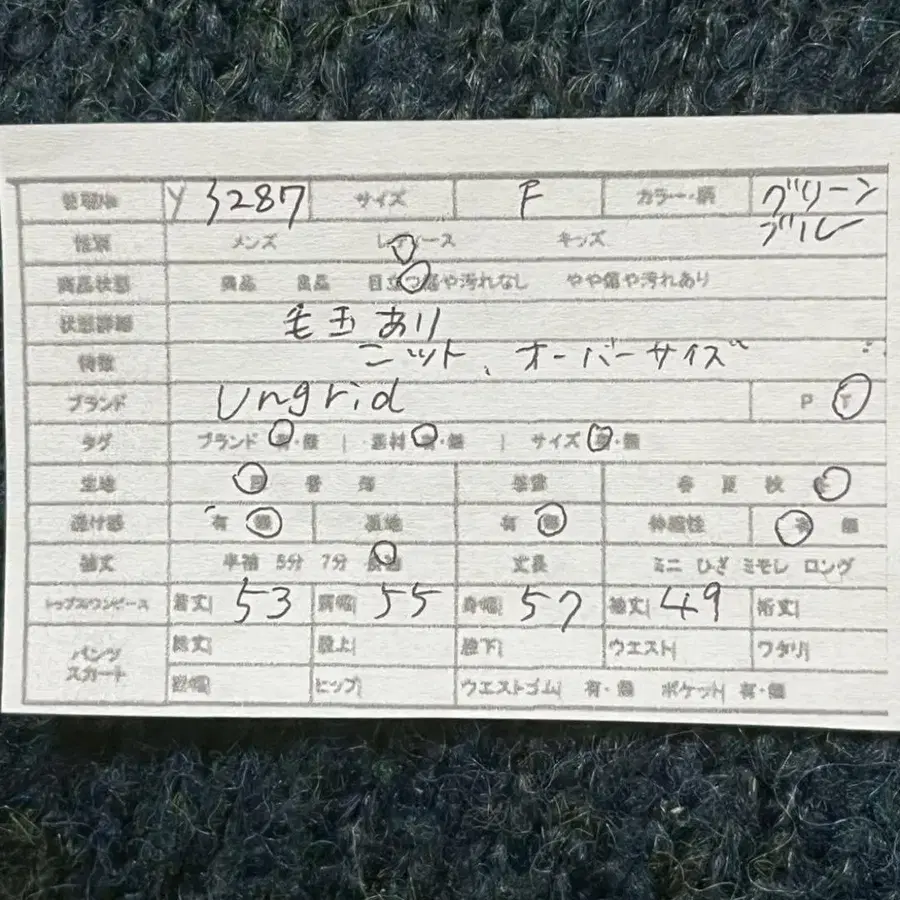 管理No Y 3287 サイズ F カラー・柄 グリーン
ブルー
性別 メンズ レディース キッズ
商品状態 美品 良品 目立つ傷や汚れなし やや傷や汚れあり
状態詳細 毛玉あり
特徴 ニット、オーバーサイズ
ブランド Ungrid P T
タグ ブランド 有・無 | 素材 有・無 | サイズ 有・無
生地 厚 普 薄 季節 春 夏 秋 冬
透け感 有 無 裏地 有 無 伸縮性 有 無
袖丈 半袖 5分 7分 長袖 丈長 ミニ ひざ ミモレ ロング
トップス/ワンピース 着丈| 53 肩幅| 55 身幅| 57 袖丈| 49 裄丈|
パンツ
スカート
総丈| 股上| 股下| ウエスト| ワタリ|
裾幅| ヒップ| ウエストゴム| 有・無 ポケット| 有・無